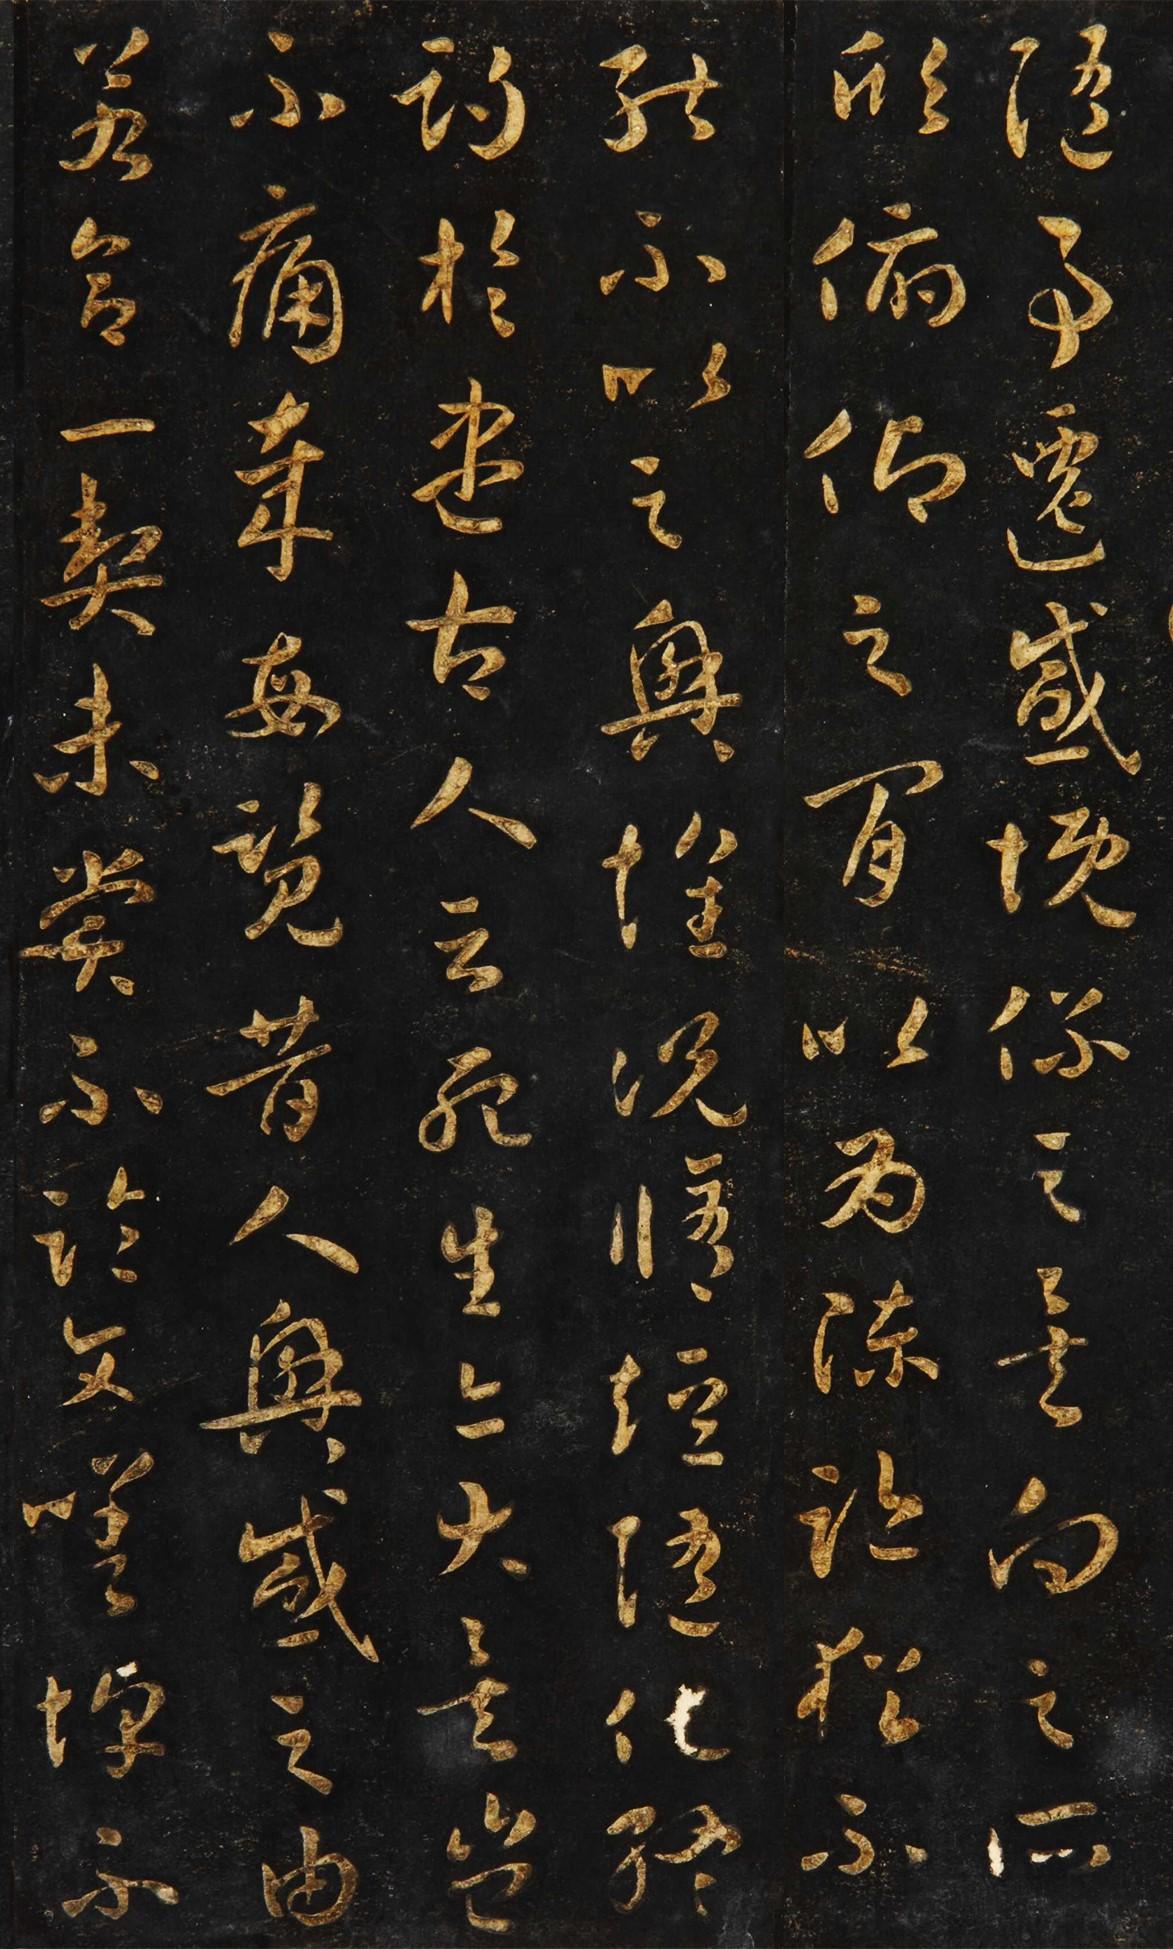 隨事遷感慨係之矣向之所
欣俯仰之間以為陳跡猶不
能不以之興懷況脩短隨化終
期於盡古人云死生亦大矣豈
不痛哉每覽昔人興感之由
若合一契未嘗不臨文嗟悼不